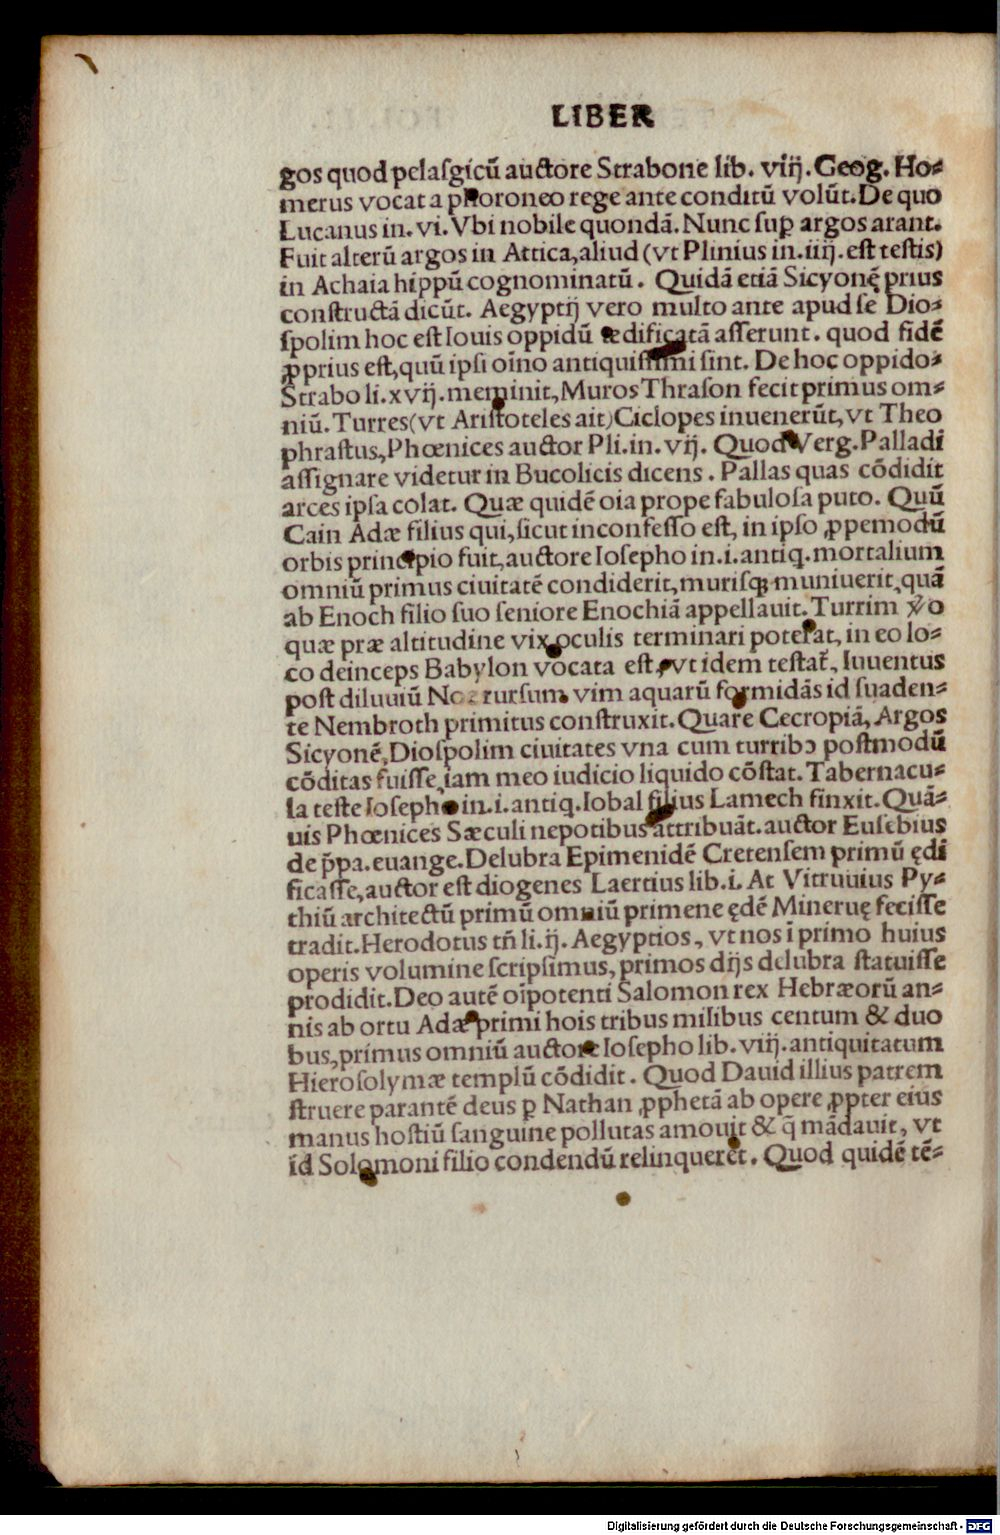 LIBER
gos quod pelaſgicū auctore Strabone lib. viij. Geog. Ho-
merus vocat a phoroneo rege ante conditū volūt. De quo
Lucanus in. vi. Vbi nobile quondā. Nunc ſuꝑ argos arant.
Fuit alterū argos in Attica, aliud (vt Plinius in. iiij. eſt teſtis)
in Achaia hippū cognominatū. Quidā etiā Sicyonę̄ prius
conſtructā dicūt. Aegyptij vero multo ante apud ſe Dio-
ſpolim hoc eſt Iouis oppidū ædificatā aſſerunt. quod fidē
ꝓprius eſt, quū ipſi oīno antiquiſſimi ſint. De hoc oppido-
Strabo li. xvij. meminit, Muros Thraſon fecit primus om-
niū. Turres (vt Ariſtoteles ait) Ciclopes inuenerūt, vt Theo
phraſtus, Phœnices auctor Pli. in. vij. Quod Verg. Palladi
aſſignare videtur in Bucolicis dicens. Pallas quas cōdidit
arces ipſa colat. Quæ quidē oia prope fabuloſa puto. Quū
Cain Adæ filius qui, ſicut in confeſſo eſt, in ipſo ꝓpemodū
orbis principio fuit, auctore Ioſepho in. i. antiq. mortalium
omniū primus ciuitatē condiderit, muriſqꝫ muniuerit, quā
ab Enoch filio ſuo ſeniore Enochiā appellauit. Turrim v̄o
quæ præ altitudine vix oculis terminari poterat, in eo lo-
co deinceps Babylon vocata eſt, vt idem teſtat̄, Iuuentus
poſt diluuiū Noe rurſum vim aquarū formidās id ſuaden-
te Nembroth primitus conſtruxit. Quare Cecropiā, Argos
Sicyonē, Dioſpolim ciuitates vna cum turribꝰ poſtmodū
cōditas fuiſſe, iam meo iudicio liquido cōſtat. Tabernacu-
la teſte Ioſepho in. i. antiq. Iobal filius Lamech finxit. Quā-
uis Phœnices Sæculi nepotibus attribuāt. auctor Euſebius
de p̄pa. euange. Delubra Epimenidē Cretenſem primū ędi
ficaſſe, auctor eſt diogenes Laertius lib. i. At Vitruuius Py-
thiū architectū primū omniū primene ędē Mineruę feciſſe
tradit. Herodotus tn̄ li. ij. Aegyptios, vt nos ī primo huius
operis volumine ſcripſimus, primos dijs delubra ſtatuiſſe
prodidit. Deo autē oīpotenti Salomon rex Hebræorū an-
nis ab ortu Adæ primi hois tribus milibus centum & duo
bus, primus omniū auctore Ioſepho lib. viij. antiquitatum
Hieroſolymæ templū cōdidit. Quod Dauid illius patrem
ſtruere parantē deus ꝑ Nathan ꝓphetā ab opere ꝓpter eius
manus hoſtiū ſanguine pollutas amouit & q̄ mādauit, vt
id Solomoni filio condendū relinqueret. Quod quidē tē-
Digitalisierung gefördert durch die Deutsche Forschungsgemeinschaft - DFG